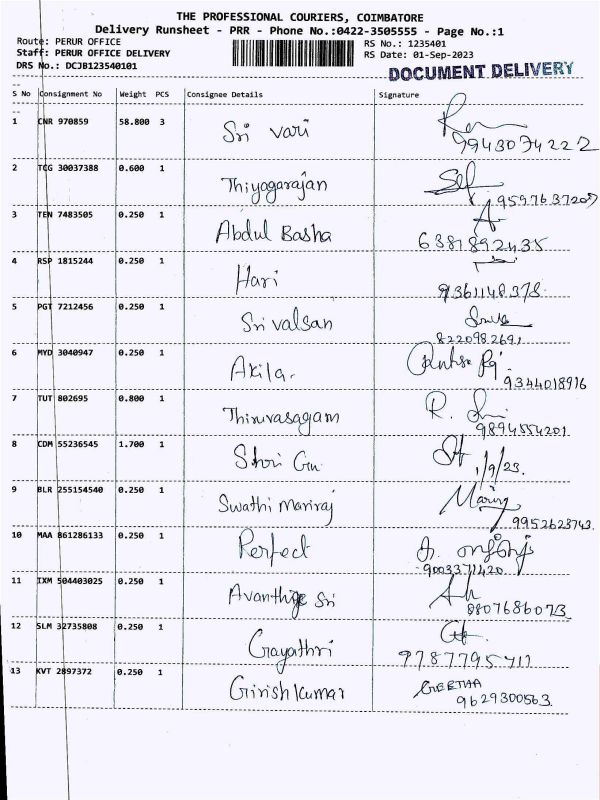 THE PROFESSIONAL COURIERS, COIMBATORE
Delivery Runsheet - PRR - Phone No.:0422-3505555 - Page No.:1
Route: PERUR OFFICE RS No.: 1235401
Staff: PERUR OFFICE DELIVERY RS Date: 01-Sep-2023
DRS No.: DCJB123540101 DOCUMENT DELIVERY
S No Consignment No Weight PCS Consignee Details Signature
1 CNR 970859 58.800 3 Sri vari
9943074222
2 TCG 30037388 0.600 1 Thiyagarajan
9597637207
3 TEN 7483505 0.250 1 Abdul Basha
6381892435
4 RSP 1815244 0.250 1 Hari
9361148378
5 PGT 7212456 0.250 1 Srivalsan
8220982691
6 MYD 3040947 0.250 1 Akila.
9344018916
7 TUT 802695 0.800 1 Thiruvasagam
9894554201
8 CDM 55236545 1.700 1 Shri Gu
1/9/23.
9 BLR 255154540 0.250 1 Swathi Mariraj
9952623743.
10 MAA 861286133 0.250 1 Perfect
9003371420
11 IXM 504403025 0.250 1 Avanthige Sri
8807686073
12 SLM 32735808 0.250 1 Gayathri
9787795711
13 KVT 2897372 0.250 1 Girishkumar GEETHA
9629300563.